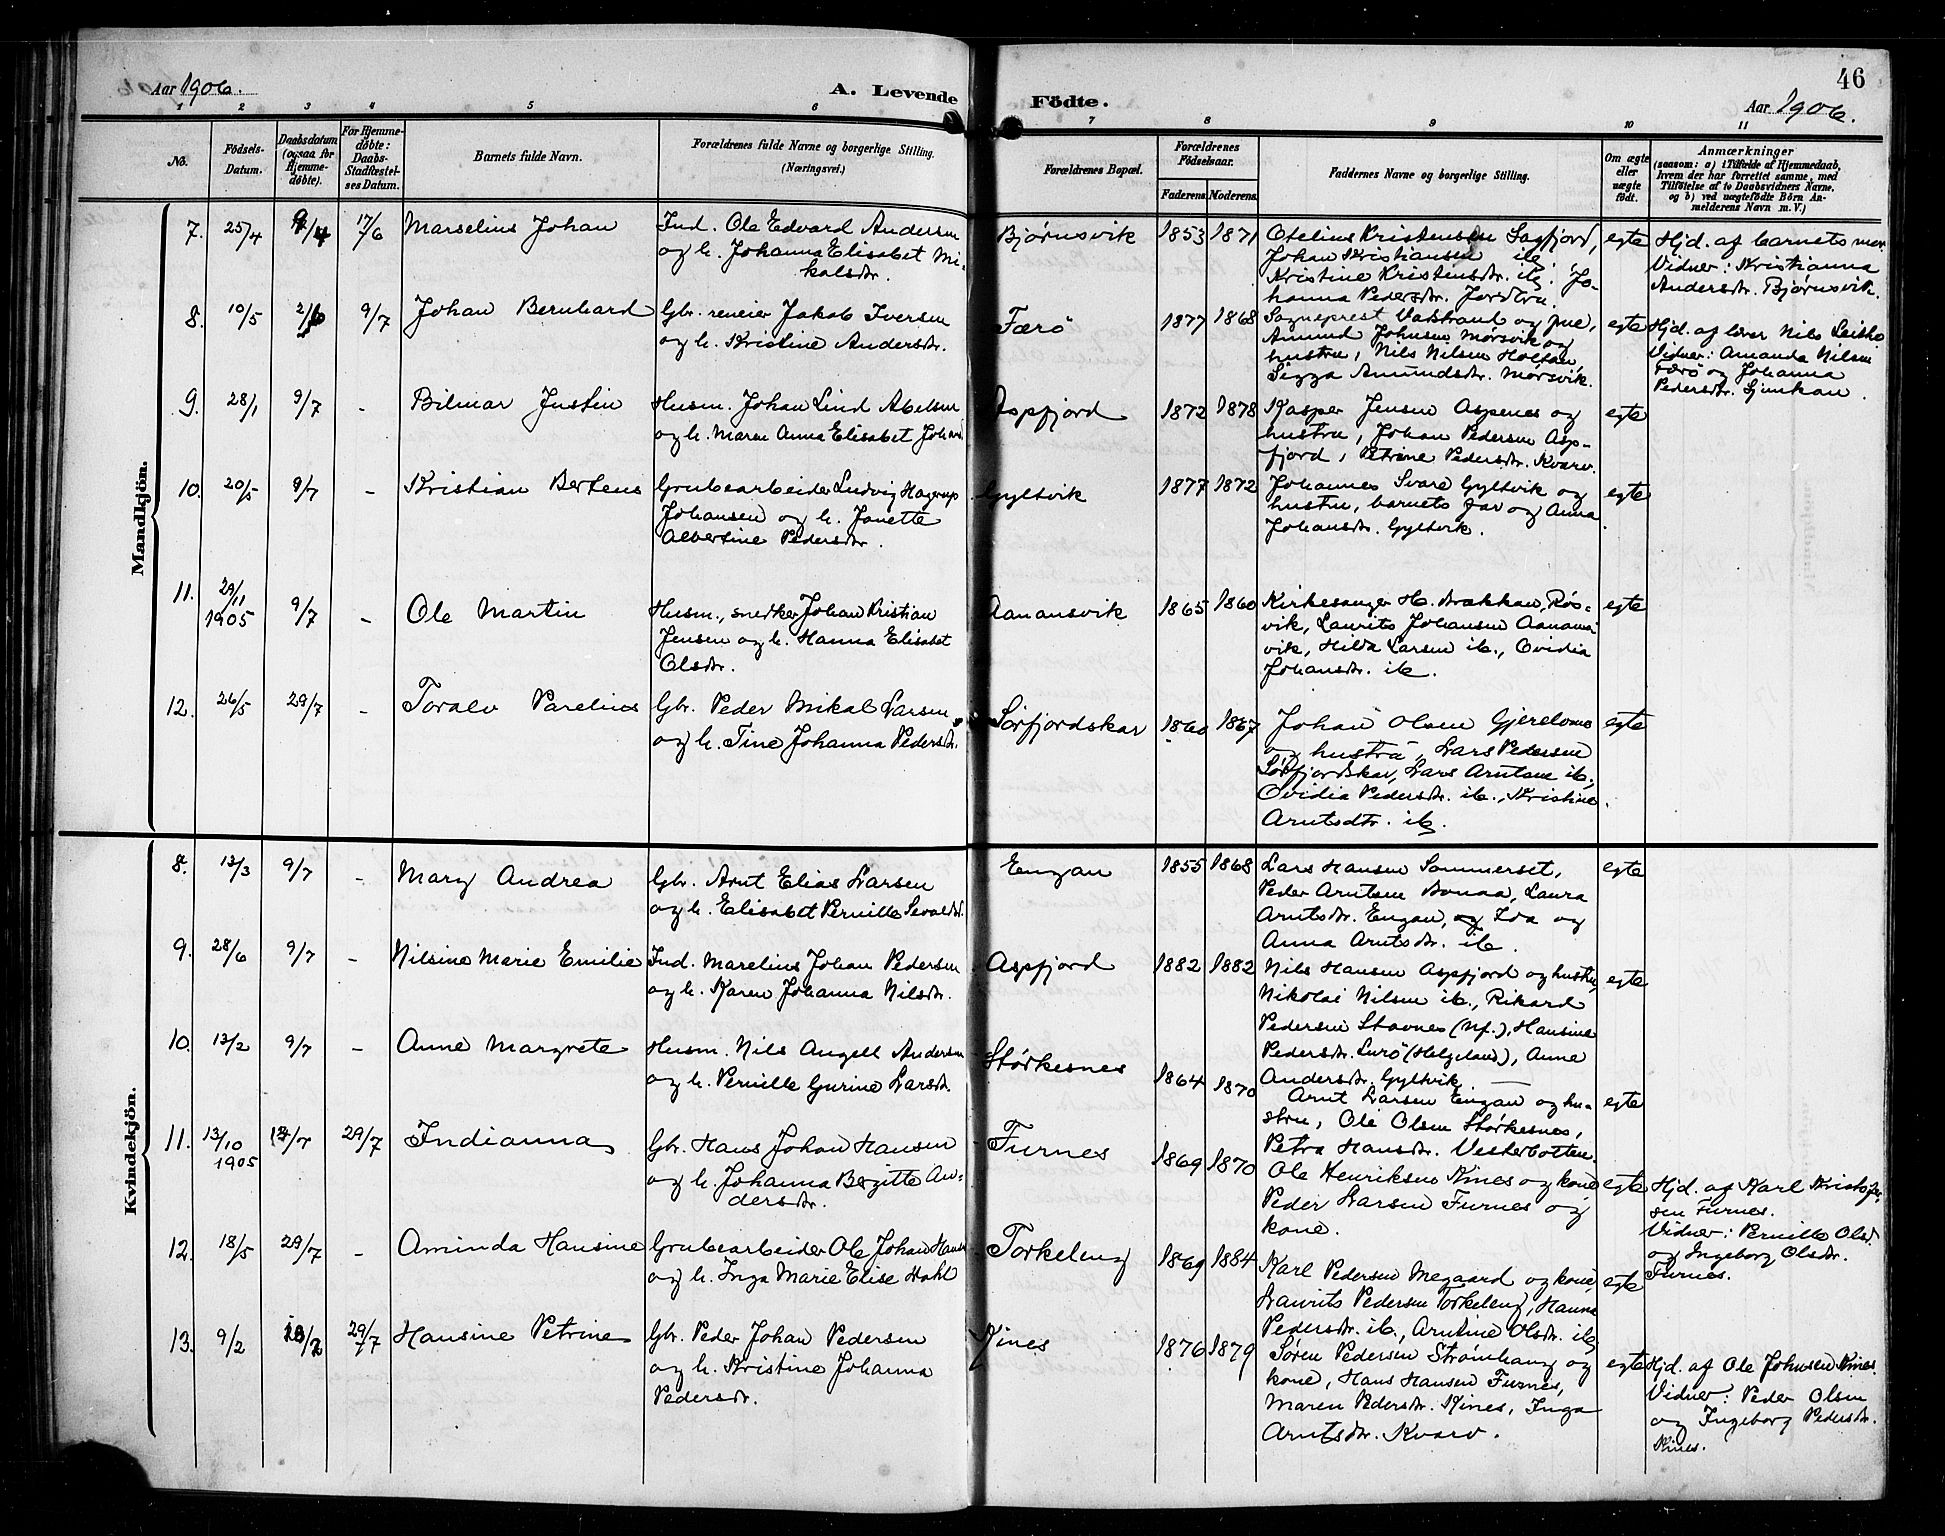 46
Aar 1906.
A. Levende Födte.
Aar 1906.
1 2 3 4 5 6 7 8 9 10 11
No.
Födsels-Datum.
Daabsdatum (ogsaa for Hjemme-döbte).
For Hjemme-döbte: Daabs-Stadfæstelses Datum.
Barnets fulde Navn.
Forældrenes fulde Navne og borgerlige Stilling. (Næringsvei.)
Forældrenes Bopæl.
Forældrenes Födselsaar.
Faderens Moderens
Faddernes Navne og borgerlige Stilling.
Om ægte eller uægte födt.
Anmærkninger
(saasom: a) i Tilfælde af Hjemmedaab, hvem der har forrettet samme, med Tilföielse af to Daabsvidners Navne. og b) ved uægtefödte Börn Anmelderens Navn m. V.)
Mandkjön.
7. 25/4 17/6 Marselius Johan
Ind. Ole Edvard Andersen
og h. Johanna Elisabet Mi-
kalsdr.
Bjørnsvik 1853 1871
Otelius Kristensen Sagfjord,
Johan Kristiansen ib.
Kristine Kristensdr. ib. Jo-
hanna Pedersdr. Jordbru.
egte
Hjd. af barnets mor.
Vidner: Kristianna
Andersdr. Bjørnsvik.
8. 10/5 9/7 Johan Bernhard
Gbr. reneier Jakob Iversen
og h. Kristine Andersdr.
Færö 1877 1868
Sogneprest Vadstrand og frue,
Amund Johnsen Mørsvik og
hustru, Nils Nilsen Holtan,
Sigga Amundsdr. Mørsvik.
egte
Hjd. af lærer Nils
Vidner: Amanda Nilsen
Færö og Johanna
Pedersdr.
9. 28/1 9/7 - Bilmar Justin
Husm. Johan Lind Abelsen
og h. Maren Anna Elisabet Johansd.
Aspfjord 1872 1878
Kasper Jensen Aspenes og
hustru, Johan Pedersen Asp-
fjord, Petrine Pedersdr. Kvarv.
egte
10. 20/5 9/7 - Kristian Bertens
Grubearbeider Ludvig Hagerup
Johansen og h. Janette
Albertine Pedersdr.
Gyltvik 1877 1872
Johannes Svare Gyltvik og
hustru, barnets far og Anna
Johansdr. Gyltvik.
egte
11. 29/11 1905 9/7 - Ole Martin
Husm., snedker Johan Kristian
Jensen og h. Hanna Elisabet
Olsdr.
Aanansvik 1865 1860
Kirkesanger H. Brækkan, Røs-
vik, Laurits Johansen Aanans-
vik, Hilda Larsen ib., Ovidia
Johansdr. ib.
egte
12. 26/5 29/7 - Toralv Parelius
Gbr. Peder Mikal Larsen
og h. Tine Johanna Pedersdr.
Sörfjordskar 1860 1867
Johan Olsen Gjerelvnes
og hustru, Lars Pedersen
Sörfjordskar, Lars Arntsen ib.,
Ovidia Pedersdr. ib., Kristine
Arntsdtr. ib.
egte
Kvindekjön.
8. 13/3 9/7 - Mary Andrea
Gbr. Arnt Elias Larsen
og h. Elisabet Pernille Sevaldsd.
Engan 1855 1868
Lars Hansen Sommerset,
Peder Arntsen Bonaa, Laura
Arntsdr. Engan, og Ida og
Anna Arntsdr. ib.
egte
9. 28/6 9/7 - Nilsine Marie Emilie
Ind. Marelius Johan Pedersen
og h. Karen Johanna Nilsdr.
Aspfjord 1882 1882
Nils Hansen Aspfjord og hustru,
Nikolai Nilsen ib., Rikard
Pedersen Stavnes (Nf.), Hansine
Pedersdr. Lurö (Helgeland), Anne
Andersdr. Gyltvik.
egte
10. 13/2 9/7 - Anne Margrete
Husm. Nils Angell Andersen
og h. Pernille Gurine Larsdr.
Størkesnes 1864 1870
Arnt Larsen Engan og hu-
stru, Ole Olsen Størkesnes,
Petra Hansdr. Vesterbotten.
egte
11. 13/10 1905 29/7 Indianna
Gbr. Hans Johan Hansen
og h. Johanna Bergitte An-
dersdr.
Furnes 1869 1870
Ole Henriksen Kines og kone
Peder Larsen Furnes og
kone.
egte
Hjd. af Karl Kristofer-
sen Furnes.
Vidner: Pernille Olsd.
og Ingeborg Olsdr.
Furnes.
12. 18/5 29/7 - Aminda Hansine
Grubearbeider Ole Johan Hansen
og h. Inga Marie Elise Hahl
Torkeleng 1869 1884
Karl Pedersen Megaard og kone,
Laurits Pedersen Torkeleng, Hanna
Pedersdr. ib., Arntine Olsdr. ib.
egte
13. 9/2 29/7 Hansine Petrine
Gbr. Peder Johan Pedersen
og h. Kristine Johanna
Pedersdr.
Kines 1876 1879
Søren Pedersen Strømhaug og
kone, Hans Hansen Furnes,
Maren Pedersdr. Kines, Inga
Arntsdr. Kvarv.
egte
Hjd. af Ole Johnsen Kines.
Vidner: Peder Olsen
og Ingeborg Pedersdr.
Kines.